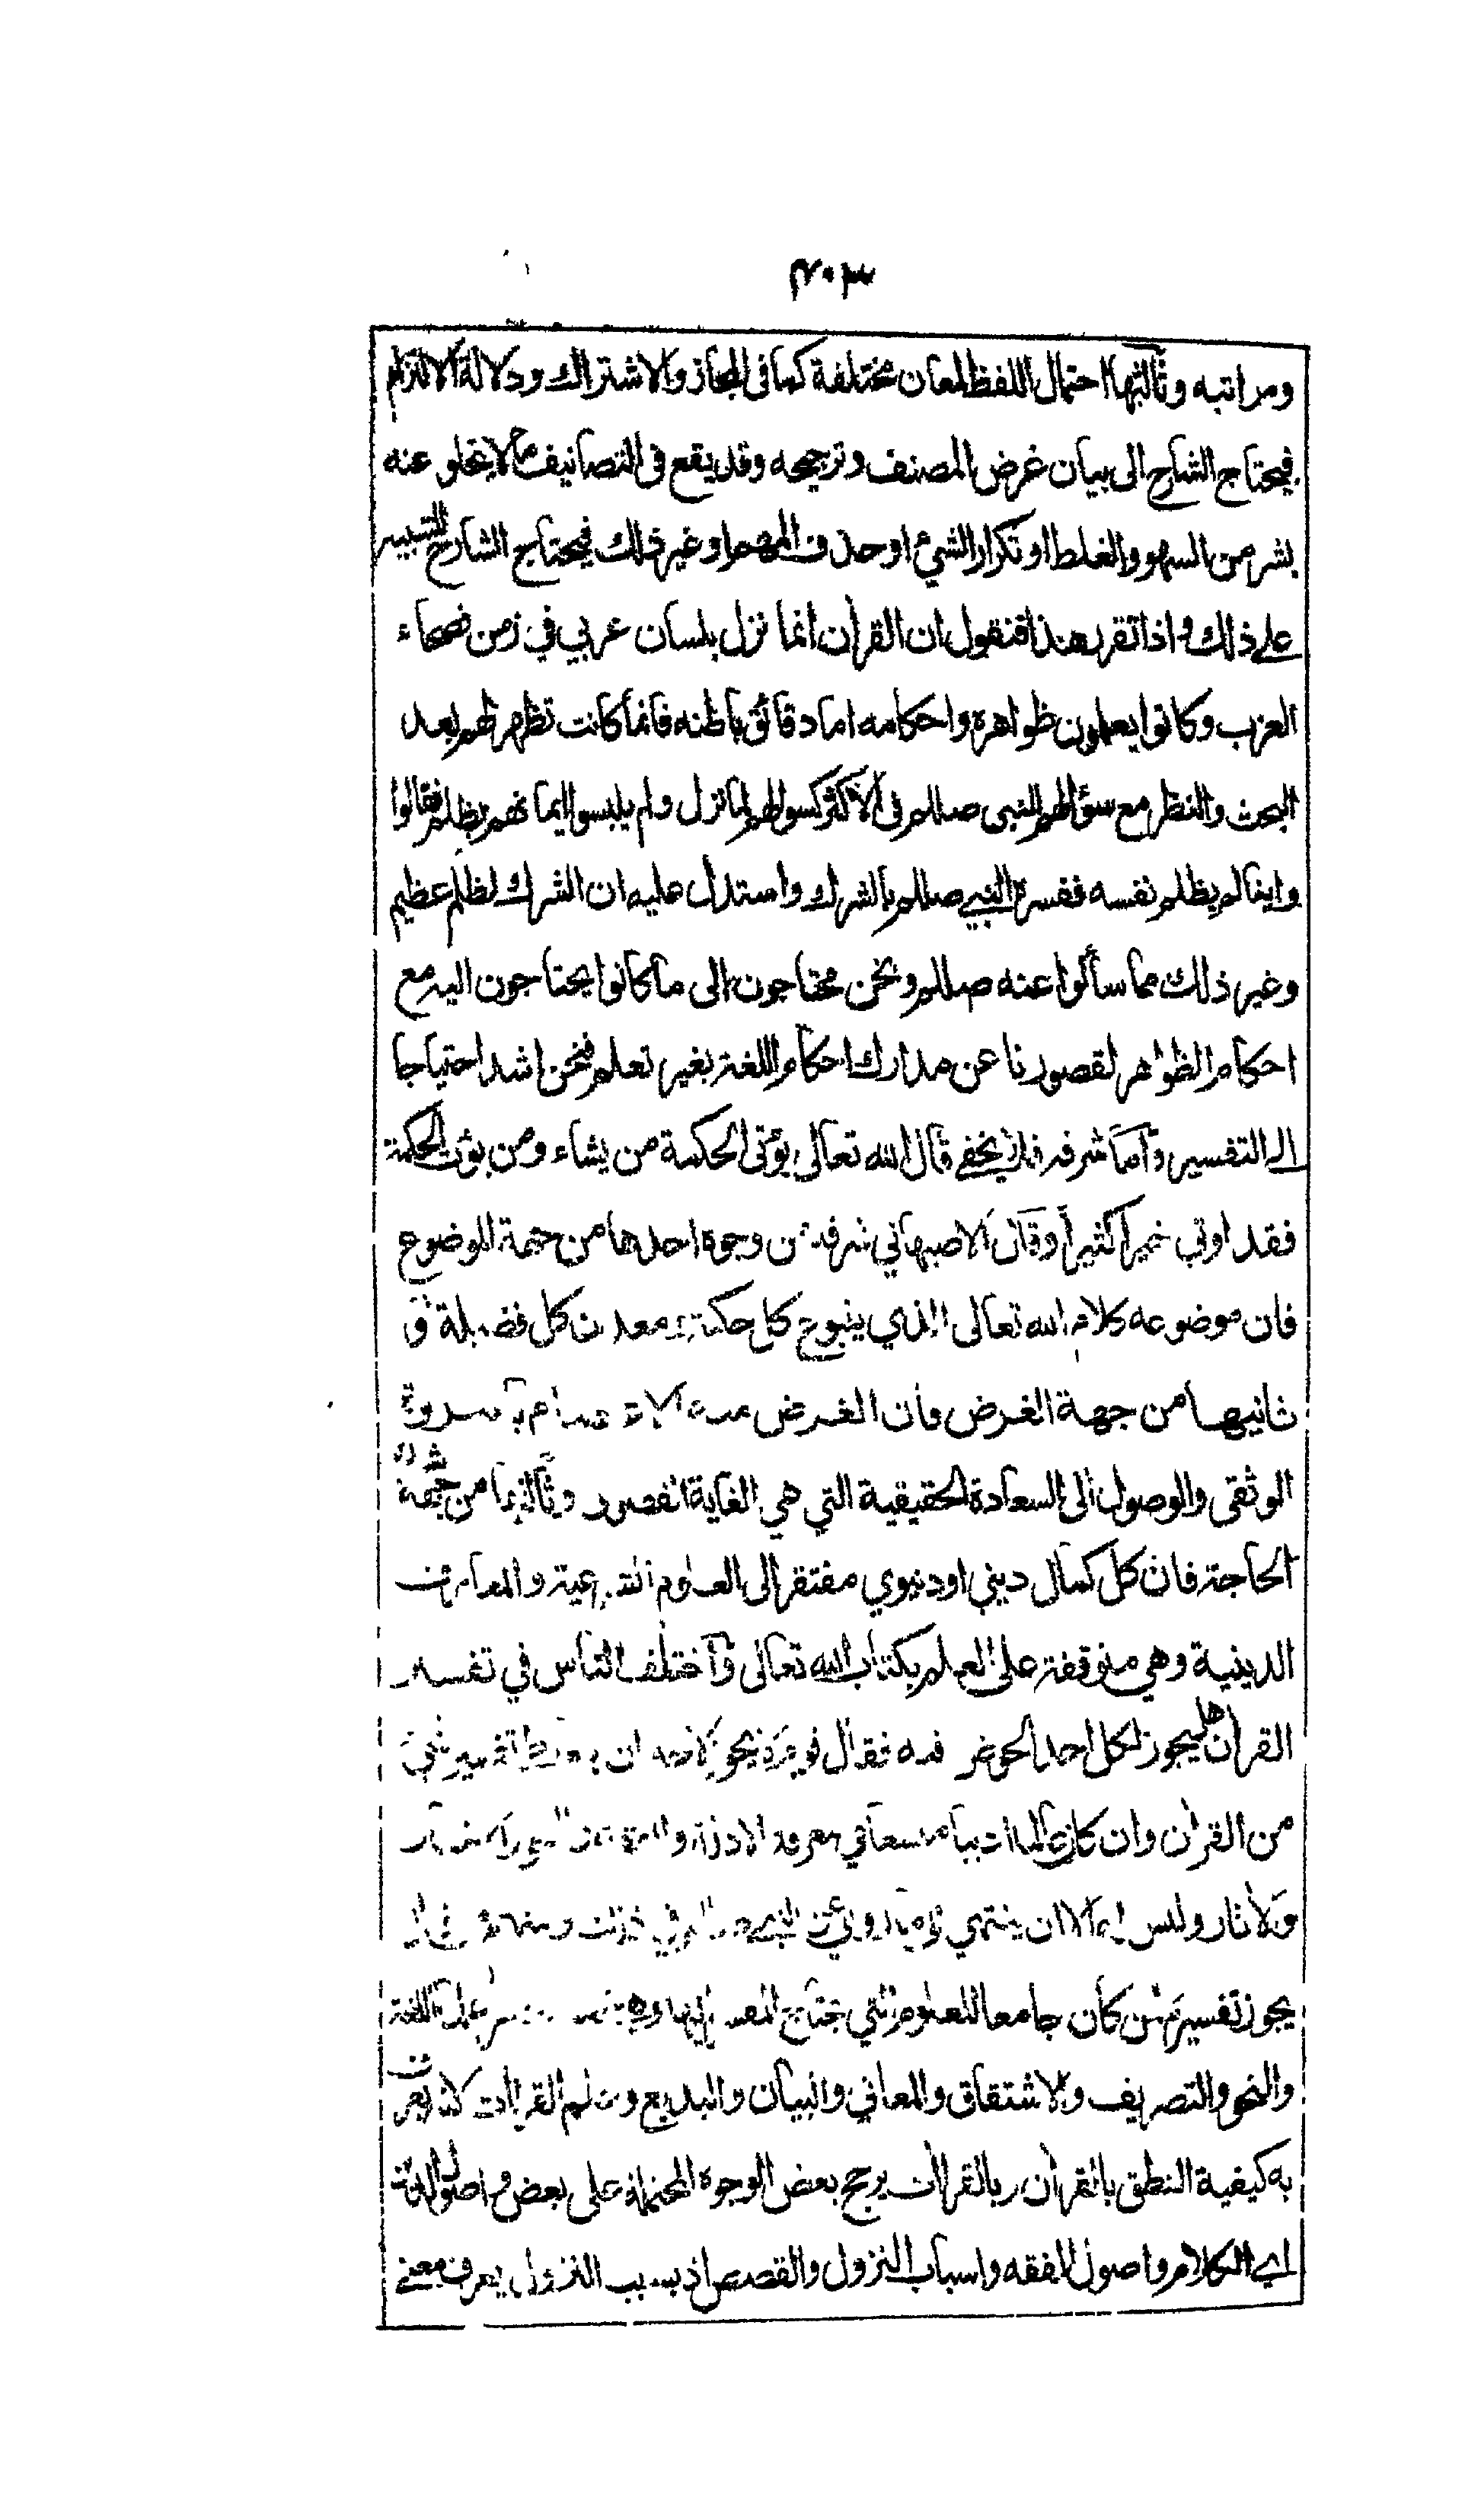 ٤٠٣
ومراتبه وثالثها احتمال اللفظ لمعان مختلفة كما فى المجاز والاشتراك ودلالة الالتزام
فيحتاج الشارح الى بيان غرض المصنف وترجيحه وقد يقع فى التصانيف ما لا يخلو عنه
بشر من السهو والغلط او تكرار الشيء او حذف المهم او غير ذلك فيحتاج الشارح للتنبيه
على ذلك واذا تقرر هذا فنقول ان القرآن انما نزل بلسان عربي في زمن فصحاء
العرب وكانوا يعلمون ظواهره واحكامه اما دقائق باطنه فانما كانت تظهر لهم بعد
البحث والنظر مع سؤالهم النبى صللم فى الاكثر كسوالهم لما نزل ولم يلبسوا ايمانهم بظلم فقالوا
واينا لم يظلم نفسه ففسره النبي صللم بالشرك واستدل عليه ان الشرك لظلم عظيم
وغير ذلك مما سألوا عنه صللم ونحن محتاجون الى ما كانوا يحتاجون اليه مع
احكام الظواهر لقصورنا عن مدارك احكام اللغة بغير تعلم فنحن اشد احتياجا
الى التفسير وأما شرفه فلا يخفى قال الله تعالى يؤتى الحكمة من يشاء ومن يؤت الحكمة
فقد اوتي خيرا كثيرا وقال الاصبهاني شرفه من وجوه احدها من جهة الموضوع
فان موضوعه كلام الله تعالى الذي ينبوع كل حكمة ومعدن كل فضيلة و
ثانيها من جهة الغرض فان الغرض منه الاعتصام بالعروة
الوثقى والوصول الى السعادة الحقيقية التي هي الغاية القصوى وثالثها من جهة شدة
الحاجة فان كل كمال ديني او دنيوي مفتقر الى العلوم الشرعية والمعارف
الدينية وهي متوقفة على العلم بكتاب الله تعالى واختلف الناس في تفسير
القرآن هل يجوز لكل احد الخوض فيه فقال قوم لا يجوز لاحد ان يتعاطى تفسير شيء
من القرآن وان كان عالما اديبا متسعا في معرفة الادلة والفقه والنحو والاخبار
والآثار وليس له الا ان ينتهي الى ما روي عن النبي صللم في ذلك ومنهم من قال
يجوز تفسيره لمن كان جامعا للعلوم التي يحتاج المفسر اليها وهي خمسة عشر علما اللغة
والنحو والتصريف والاشتقاق والمعاني والبيان والبديع وعلم القراآت لانه يعرف
به كيفية النطق بالقرآن وبالقراآت يرجح بعض الوجوه المحتملة على بعض واصول الدين
اي الكلام واصول الفقه واسباب النزول والقصص اذ بسبب النزول يعرف معنى